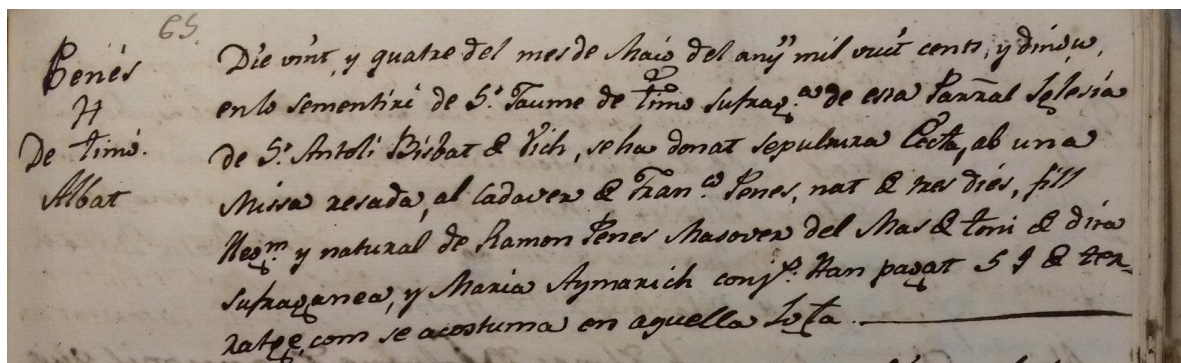 65.
Penés
H
De timó.
Albat
Die vint, y quatre del mes de Maió del anÿ mil vuit cents, y dinou,
en lo sementiri de S.t Jaume de timó sufrag.a de esta Parr̃al Iglesia
de S.t Antolí Bisbat de Vich, se ha donat sepultura Ecc̃ta, ab una
Missa resada, al Cadaver de Fran.co Penes, nat de tres dies, fill
lleg.m y natural de Ramon Penes Masover del Mas de toni de dita
sufraganea, y Maria Aymarich conj.s Han pagat 5 de ter-
ratge, com se acostuma en aquella